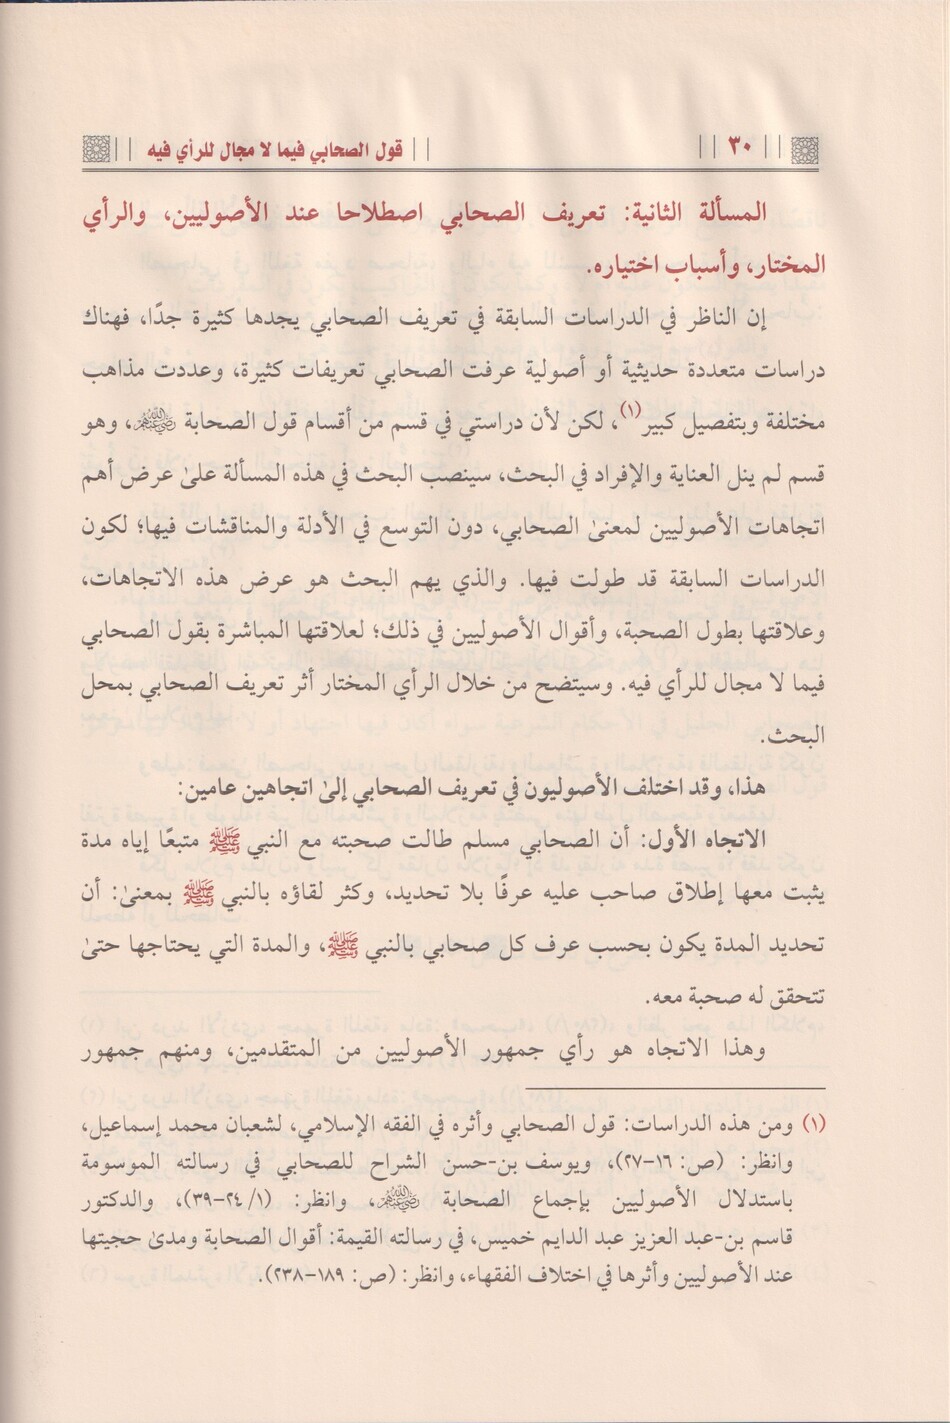 ٣٠
قول الصحابي فيما لا مجال للرأي فيه
المسألة الثانية: تعريف الصحابي اصطلاحا عند الأصوليين، والرأي
المختار، وأسباب اختياره.
إن الناظر في الدراسات السابقة في تعريف الصحابي يجدها كثيرة جدًا، فهناك
دراسات متعددة حديثية أو أصولية عرفت الصحابي تعريفات كثيرة، وعددت مذاهب
مختلفة وبتفصيل كبير(١)، لكن لأن دراستي في قسم من أقسام قول الصحابة رضي الله عنهم، وهو
قسم لم ينل العناية والإفراد في البحث، سينصب البحث في هذه المسألة علىٰ عرض أهم
اتجاهات الأصوليين لمعنىٰ الصحابي، دون التوسع في الأدلة والمناقشات فيها؛ لكون
الدراسات السابقة قد طولت فيها. والذي يهم البحث هو عرض هذه الاتجاهات،
وعلاقتها بطول الصحبة، وأقوال الأصوليين في ذلك؛ لعلاقتها المباشرة بقول الصحابي
فيما لا مجال للرأي فيه. وسيتضح من خلال الرأي المختار أثر تعريف الصحابي بمحل
البحث.
هذا، وقد اختلف الأصوليون في تعريف الصحابي إلىٰ اتجاهين عامين:
الاتجاه الأول: أن الصحابي مسلم طالت صحبته مع النبي ﷺ متبعًا إياه مدة
يثبت معها إطلاق صاحب عليه عرفًا بلا تحديد، وكثر لقاؤه بالنبي ﷺ بمعنىٰ: أن
تحديد المدة يكون بحسب عرف كل صحابي بالنبي ﷺ، والمدة التي يحتاجها حتىٰ
تتحقق له صحبة معه.
وهذا الاتجاه هو رأي جمهور الأصوليين من المتقدمين، ومنهم جمهور
(١) ومن هذه الدراسات: قول الصحابي وأثره في الفقه الإسلامي، لشعبان محمد إسماعيل،
وانظر: (ص: ١٦-٢٧)، ويوسف بن-حسن الشراح للصحابي في رسالته الموسومة
باستدلال الأصوليين بإجماع الصحابة رضي الله عنهم، وانظر: (١/ ٢٤-٣٩)، والدكتور
قاسم بن-عبد العزيز عبد الدايم خميس، في رسالته القيمة: أقوال الصحابة ومدىٰ حجيتها
عند الأصوليين وأثرها في اختلاف الفقهاء، وانظر: (ص: ١٨٩-٢٣٨).